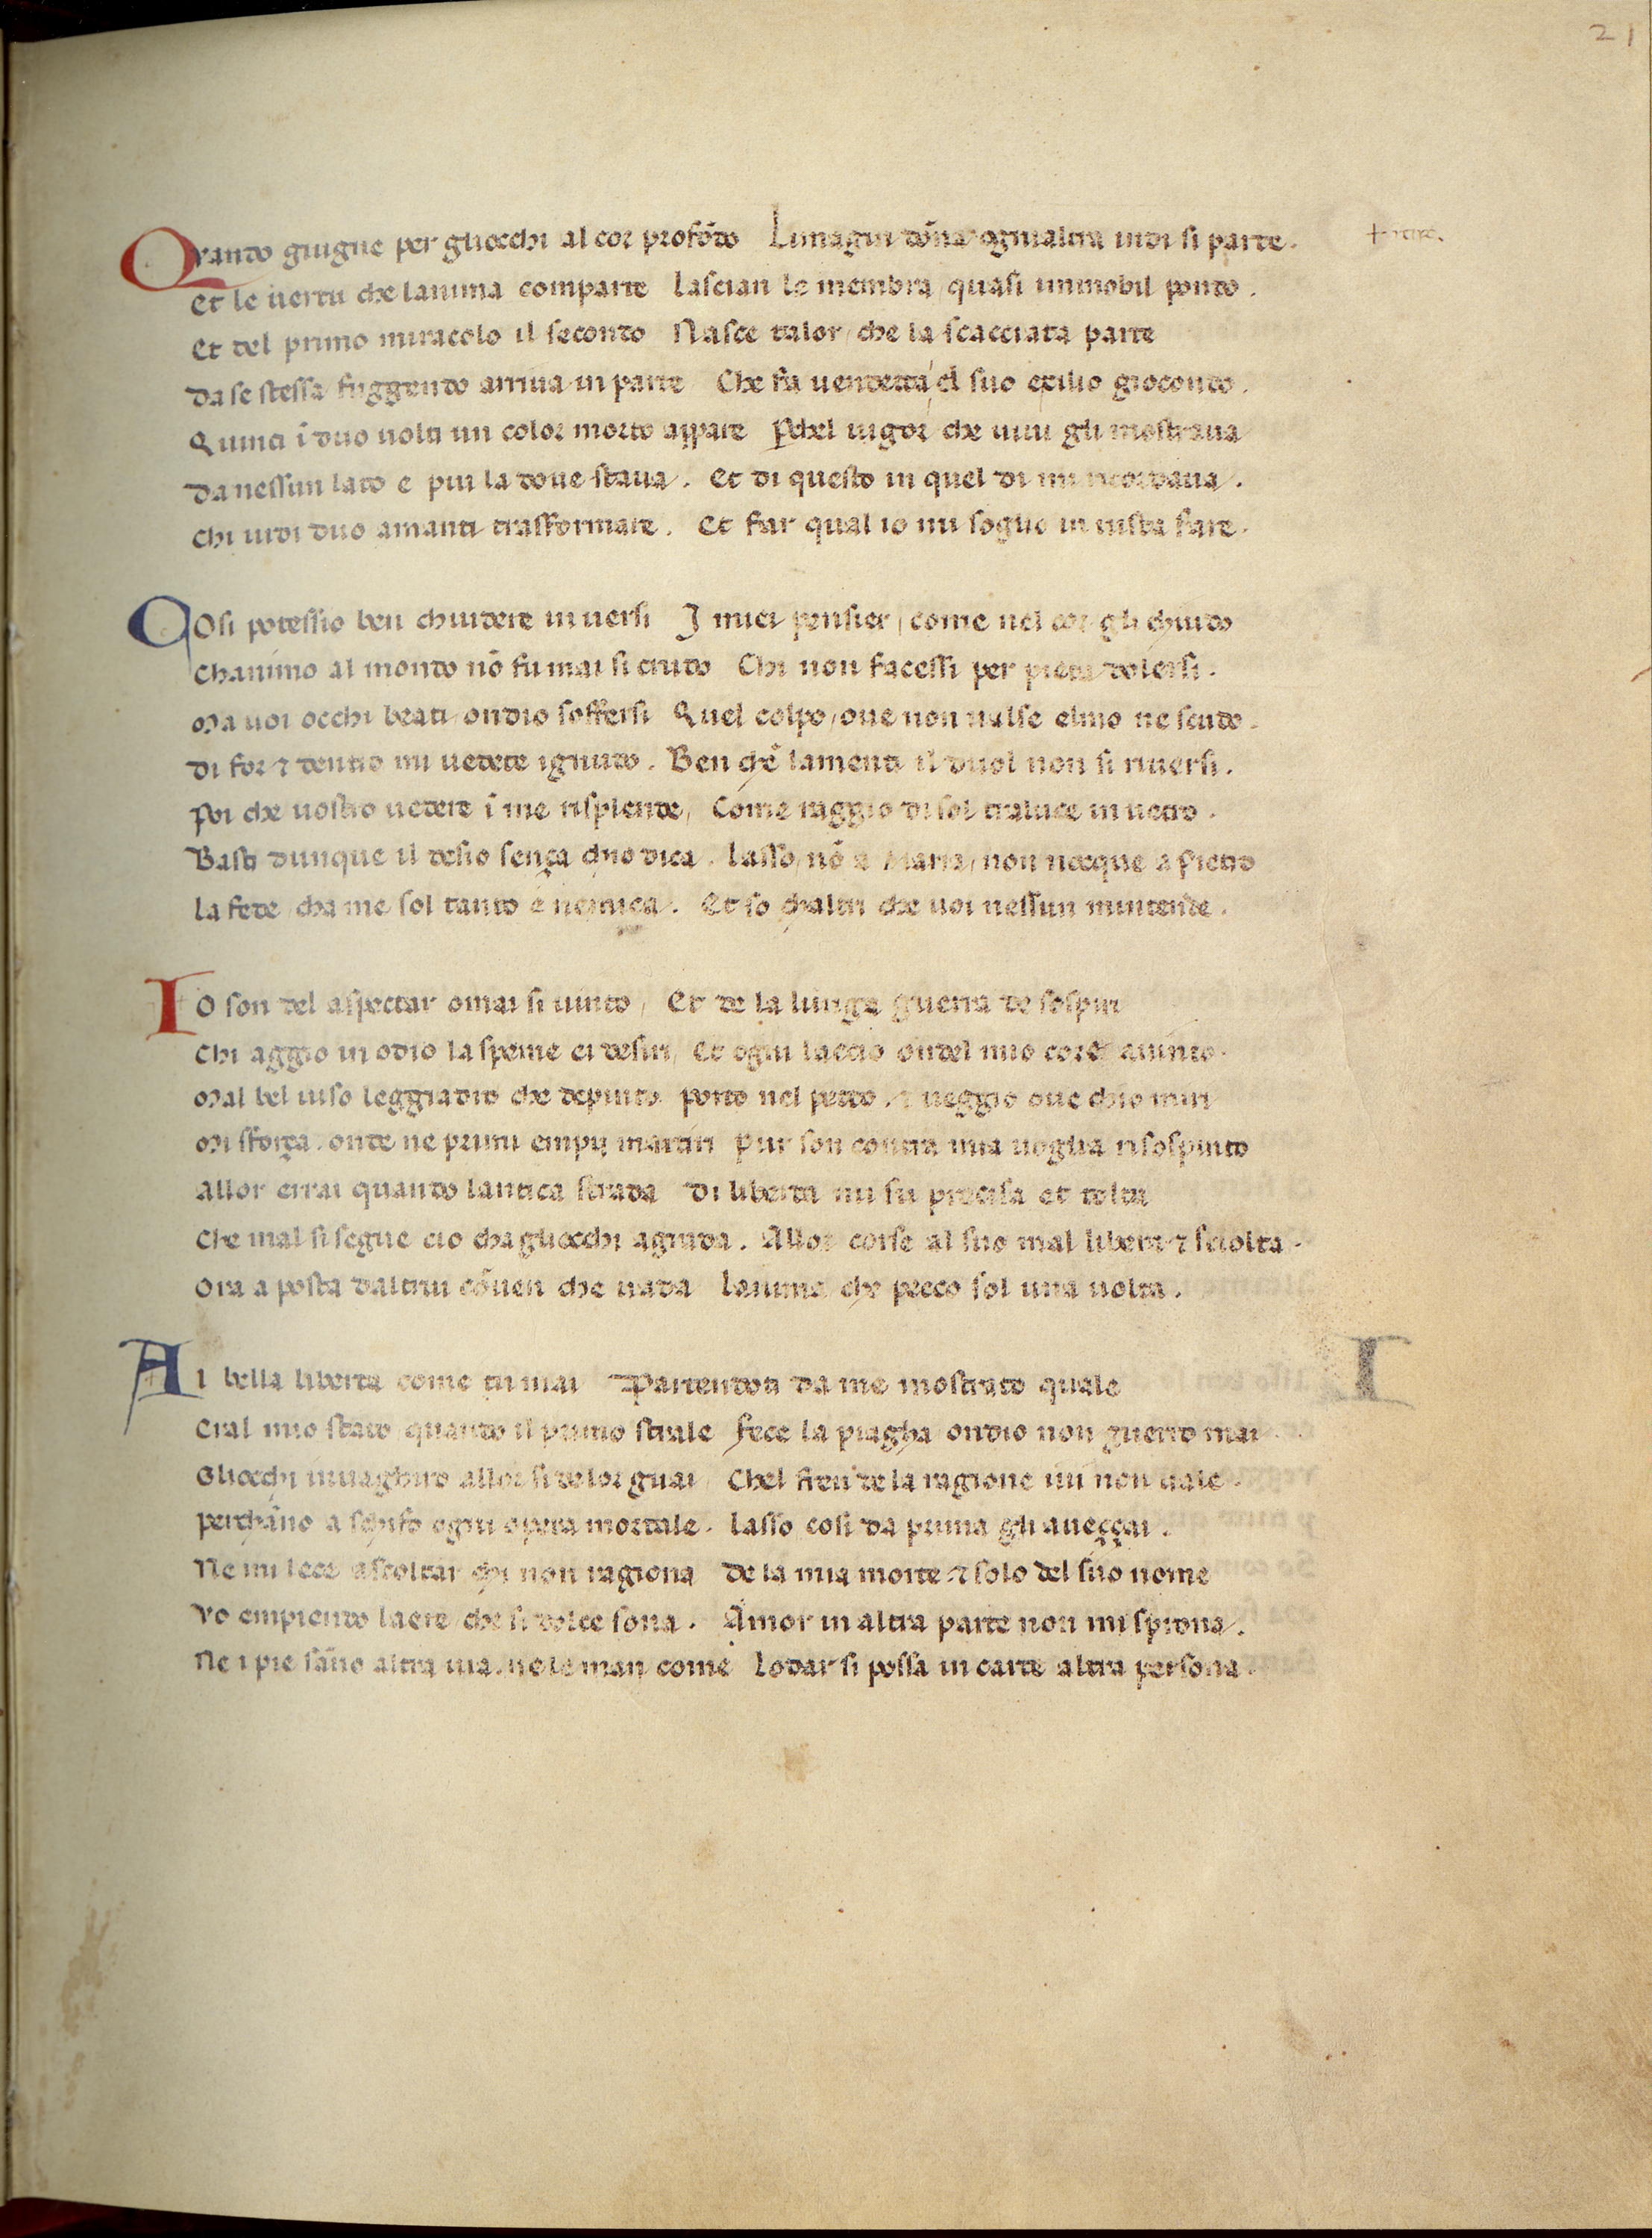 21
Quando giugne per gliocchi al cor profōdo Limagin dōna ogni altra indi si parte.
Et le uertu che lanima comparte lascian le membra / quasi immobil pondo.
Et del primo miracolo il secondo Nasce talor / che la scacciata parte
da se stessa fuggendo arriua in parte Che fa uendetta / el suo exilio giocondo.
Quinci ī duo uolti un color morto appare Perchel uigor che uiui gli mostraua
da nessun lato e piu la doue staua. Et di questo in quel di mi ricordaua.
Chi uidi duo amanti trasformare. Et far qual io mi soglio in uista fare.
COsi potessio ben chiudere in uersi I miei pensier / come nel cor gli chiudo
Chanimo al mondo nō fu mai si crudo Chi non facessi per pieta dolersi.
Ma uoi occhi beati / ondio soffersi Quel colpo / oue non ualse elmo ne scudo.
di for et dentro mi uedete ignudo. Ben che ̄ lamenti il duol non si riuersi.
Poi che uostro uedere ī me risplende / Come raggio di sol traluce in uetro.
Basti dunque il desio sença chio dica. lasso / nō a Maria / non nocque a Pietro
la fede / cha me sol tanto e nemica. Et so chaltri che uoi nessun mintende.
IO son del aspectar omai si uinto / Et de la lunga guerra de sospiri
Chi aggio in odio la speme ei desiri / Et ogni laccio ondel mio core auinto.
Mal bel uiso leggiadro che depinto porto nel petto. et ueggio oue chio miri
Mi sforça. onde ne primi empij martiri pur son contra mia uoglia risospinto
Allor errai quando lantica strada di liberta mi fu precisa et tolta
Che mal si segue cio cha gliocchi agrada. Allor corse al suo mal libera et sciolta.
Ora a posta daltrui cōuen che uada lanima che pecco sol una uolta.
AI bella liberta come tu mai Partendoti da me mostrato quale
Eral mio stato / quando il primo strale fece la piagha / ondio non guerro mai.
Gliocchi inuaghiro allor si de lor guai / Chel fren de la ragione iui non uale.
perchāno a schifo ogni opera mortale. lasso cosi da prima gli aueççai.
Ne mi lece ascoltar chi non ragiona de la mia morte. et solo del suo nome
Vo empiendo laere che si dolce sona. Amor in altra parte non mi sprona.
Ne i pie sāno altra uia. ne le man come lodar si possa in carte altra persona.